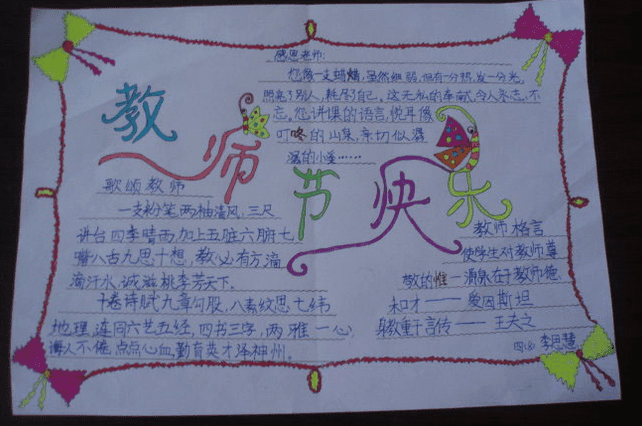 教师节快乐
感恩老师:
您像一支蜡烛,虽然细弱,但有一分热,发一分光,
照亮了别人,耗尽了自己。这无私的奉献,令人永志不
忘。您讲课的语言,悦耳像
叮咚的山泉,亲切似潺
潺的小溪……
歌颂教师
一支粉笔,两袖清风,三尺
讲台四季晴雨,加上五脏六腑七
嘴八舌九思十想,教必有方滴
滴汗水,诚滋桃李芳天下.
十卷诗赋九章勾股,八索纹思七纬
地理,连同六艺五经,四书三字,两雅一心,
诲人不倦,点点心血,勤育英才泽神州。
教师格言
使学生对教师尊
敬的惟一源泉在于教师德
和才——爱因斯坦
身教重于言传——王夫之